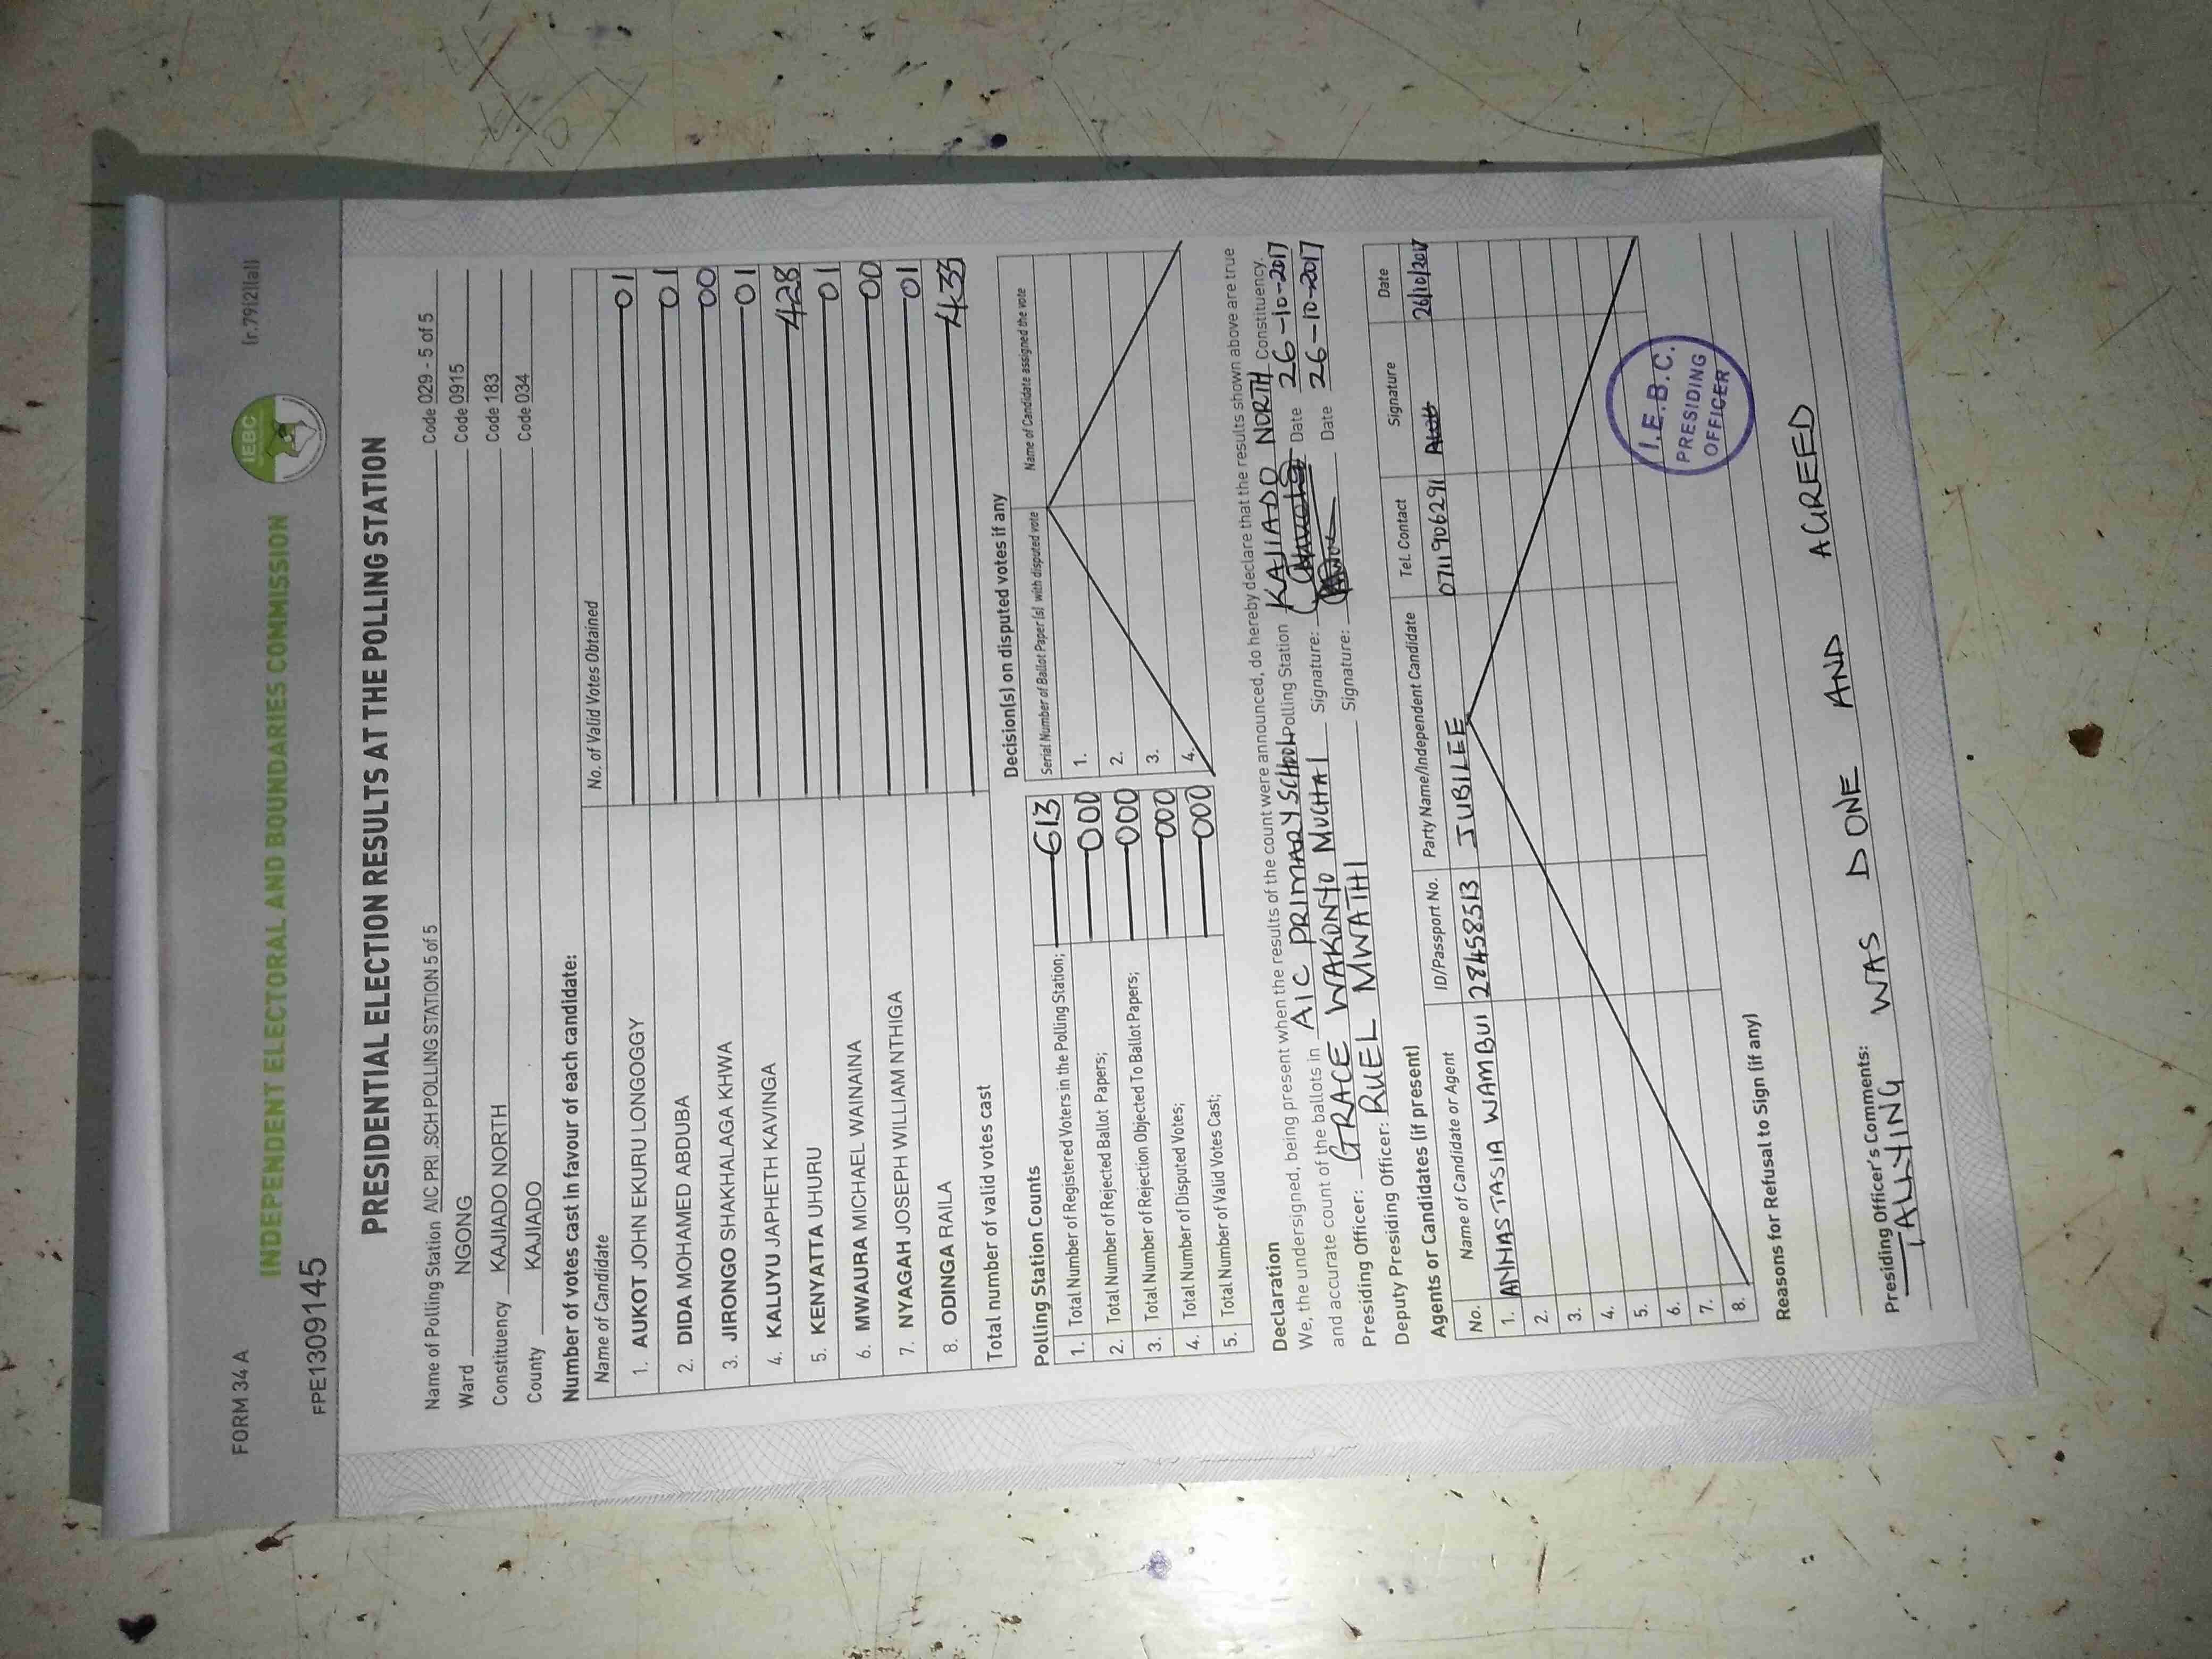 FORM 34 A (r.79(2)(a))
IEBC
INDEPENDENT ELECTORAL AND BOUNDARIES COMMISSION
FPE1309145
PRESIDENTIAL ELECTION RESULTS AT THE POLLING STATION
Name of Polling Station AIC PRI .SCH POLLING STATION 5 of 5 Code 029 - 5 of 5
Ward NGONG Code 0915
Constituency KAJIADO NORTH Code 183
County KAJIADO Code 034
Number of votes cast in favour of each candidate:
Name of Candidate No. of Valid Votes Obtained
1. AUKOT JOHN EKURU LONGOGGY 01
2. DIDA MOHAMED ABDUBA 01
3. JIRONGO SHAKHALAGA KHWA 00
4. KALUYU JAPHETH KAVINGA 01
5. KENYATTA UHURU 428
6. MWAURA MICHAEL WAINAINA 01
7. NYAGAH JOSEPH WILLIAM NTHIGA 00
8. ODINGA RAILA 01
Total number of valid votes cast 433
Polling Station Counts
1. Total Number of Registered Voters in the Polling Station; 613
2. Total Number of Rejected Ballot Papers; 000
3. Total Number of Rejection Objected To Ballot Papers; 000
4. Total Number of Disputed Votes; 000
5. Total Number of Valid Votes Cast; 000
Decision(s) on disputed votes if any
Serial Number of Ballot Paper (s) with disputed vote Name of Candidate assigned the vote
1.
2.
3.
4.
Declaration
We, the undersigned, being present when the results of the count were announced, do hereby declare that the results shown above are true
and accurate count of the ballots in AIC PRIMARY SCHOOL Polling Station KAJIADO NORTH Constituency.
Presiding Officer: GRACE WAKONYO MUCHAI Signature: Date 26-10-2017
Deputy Presiding Officer: RUEL MWATHI Signature: Date 26-10-2017
Agents or Candidates (if present)
No. Name of Candidate or Agent ID/Passport No. Party Name/Independent Candidate Tel. Contact Signature Date
1. ANNASTASIA WAMBUI 28458513 JUBILEE 0711906291 26/10/2017
2.
3.
4.
5.
6.
7.
8.
I.E.B.C.
PRESIDING
OFFICER
Reasons for Refusal to Sign (if any)
Presiding Officer's Comments:
TALLYING WAS DONE AND AGREED